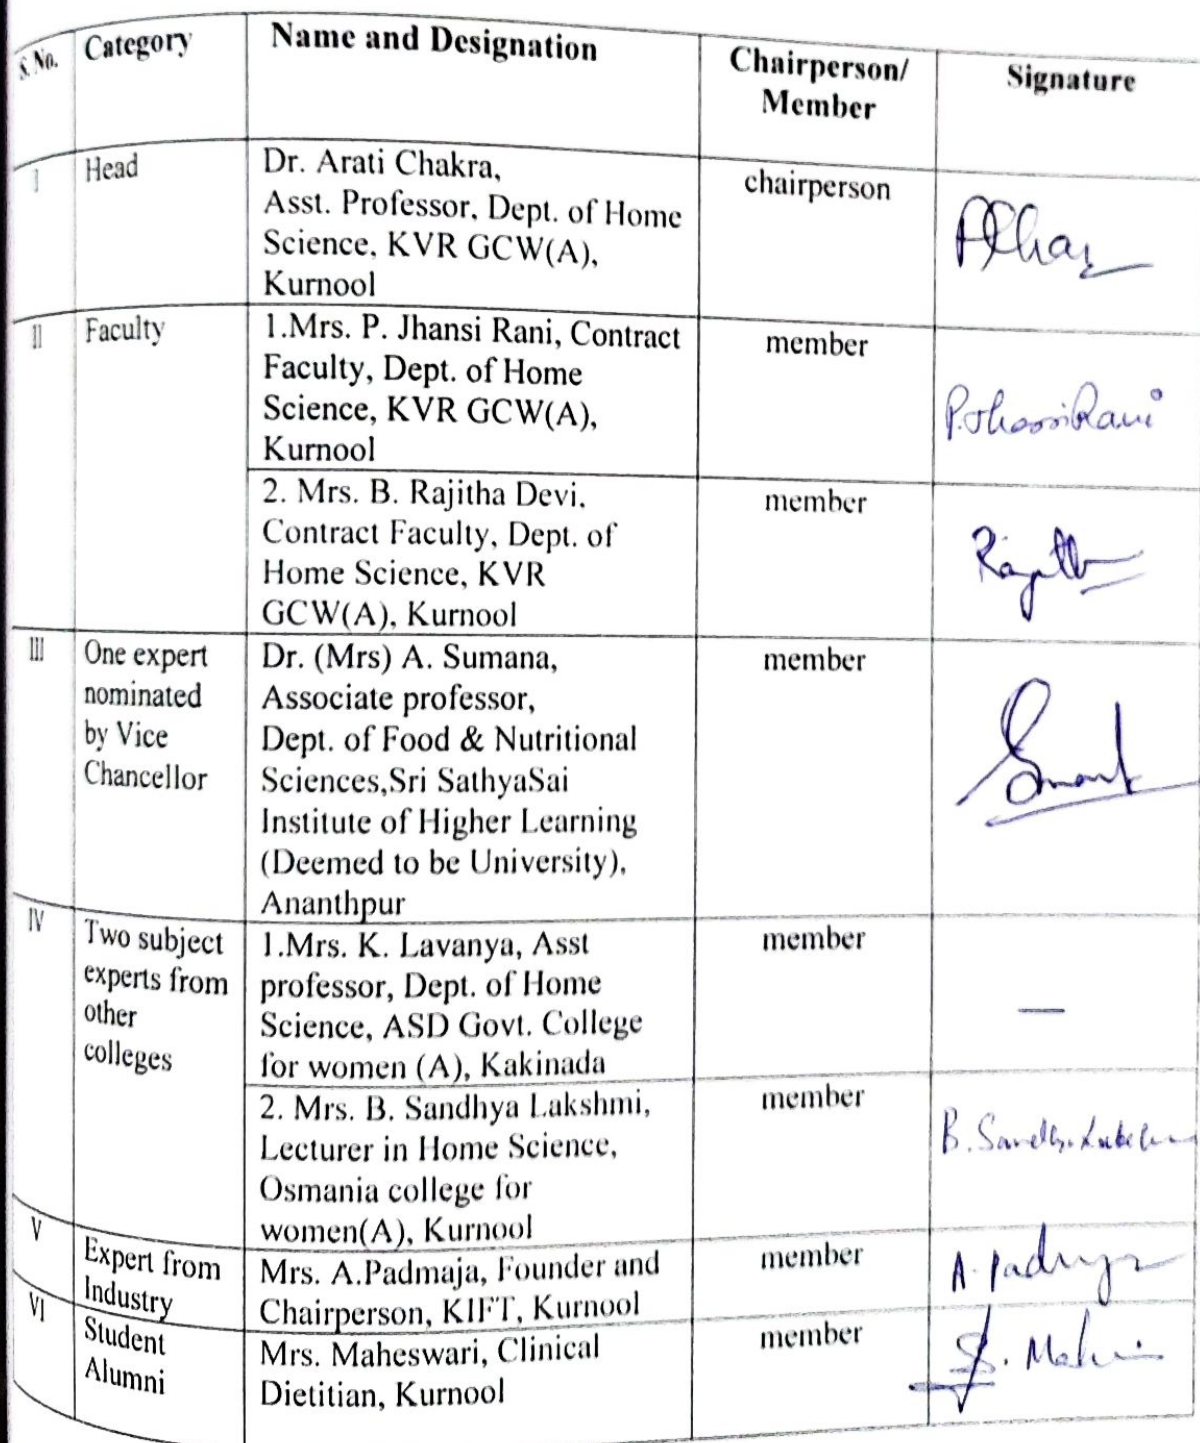 S. No.
Category
Name and Designation
Chairperson/
Member
Signature
I
Head
Dr. Arati Chakra,
Asst. Professor, Dept. of Home
Science, KVR GCW(A),
Kurnool
chairperson
II
Faculty
1.Mrs. P. Jhansi Rani, Contract
Faculty, Dept. of Home
Science, KVR GCW(A),
Kurnool
member
P.Jhansi Rani
2. Mrs. B. Rajitha Devi.
Contract Faculty, Dept. of
Home Science, KVR
GCW(A), Kurnool
member
III
One expert
nominated
by Vice
Chancellor
Dr. (Mrs) A. Sumana,
Associate professor,
Dept. of Food & Nutritional
Sciences,Sri SathyaSai
Institute of Higher Learning
(Deemed to be University),
Ananthpur
member
IV
Two subject
experts from
other
colleges
1.Mrs. K. Lavanya, Asst
professor, Dept. of Home
Science, ASD Govt. College
for women (A), Kakinada
member
—
2. Mrs. B. Sandhya Lakshmi,
Lecturer in Home Science,
Osmania college for
women(A), Kurnool
member
V
Expert from
Industry
Mrs. A.Padmaja, Founder and
Chairperson, KIFT, Kurnool
member
VI
Student
Alumni
Mrs. Maheswari, Clinical
Dietitian, Kurnool
member